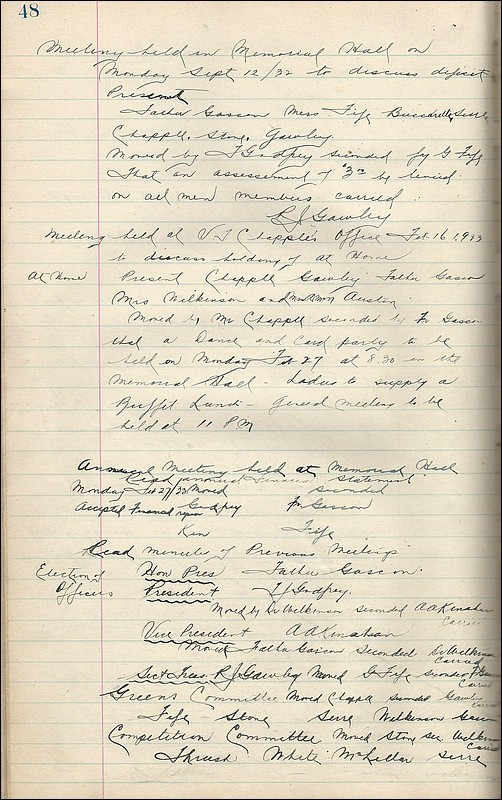 48
Meeting held in Memorial Hall on
Monday Sept 12/32 to discuss deficit
Present
Father Gascon Mess Fife Serre
Chapple. Stone. Gawley
Moved by T Godfrey seconded by G Fife
That an assessment of $3.00 be levied
on all men members carried
R J Gawley
Meeting held at V T Chapple's Office Feb 16 1933
to discuss holding of at Home
At Home Present Chapple Gawley Father Gascon
Mrs Wilkinson and Austin
Moved by Mr Chapple seconded by Fr Gascon
that a Dance and Card party to be
held on Monday Feb 27 at 8.30 in the
Memorial Hall - Ladies to supply a
Buffet Lunch - General meeting to be
held at 11 P M
Annual Meeting held at Memorial Hall
Read annual Financial Statement
Monday Feb 27/33 Moved seconded
Accepted Financial report Godfrey Fr Gascon
Ken Fife
Read minutes of Previous Meetings
Election of Hon Pres Father Gascon.
Officers President T J Godfrey.
Moved by Dr Wilkinson seconded A A Kinahan
Carried
Vice President A A Kinahan
Moved Father Gascon Seconded Dr Wilkinson
Carried
Sect Treas. R J Gawley Moved G Fife seconded F Gascon
Carried
Greens Committee Moved Chapple seconded Gawley
Carried
Fife - Stone Serre Wilkinson Gascon
Competition Committee Moved Stone sec. Wilkinson
Carried
Thrush White McKellar Serre